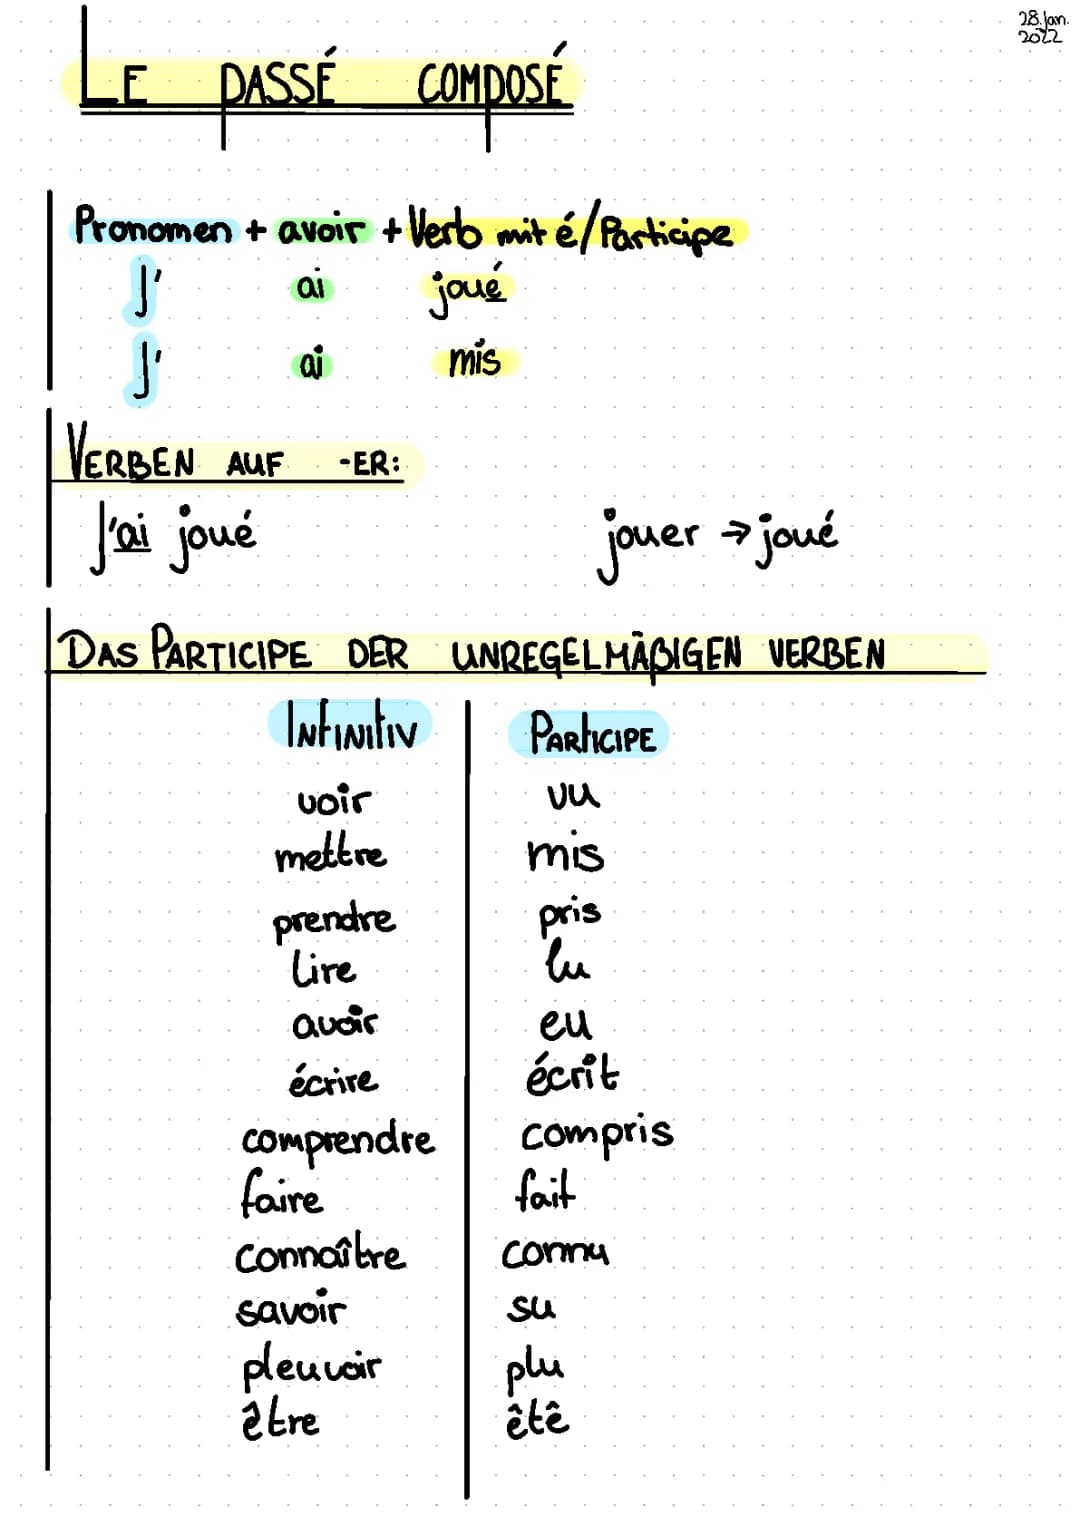 28. Jan.
2022
LE PASSÉ COMPOSÉ
Pronomen + avoir + Verb mit é/Participe
J' ai joué
J' ai mis
VERBEN AUF -ER:
J'ai joué jouer → joué
DAS PARTICIPE DER UNREGELMÄßIGEN VERBEN
INFINITIV PARTICIPE
voir vu
mettre mis
prendre pris
lire lu
avoir eu
écrire écrit
comprendre compris
faire fait
connaître connu
savoir su
pleuvoir plu
être êtê